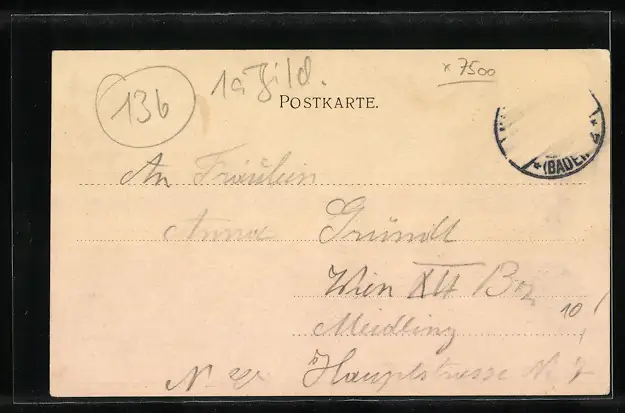 136
1a Bild.
x 7500
POSTKARTE.
* (BADEN) *
An Fräulein
Anna Gründl
Wien XII Bez
10
Meidling
Hauptstrasse N.